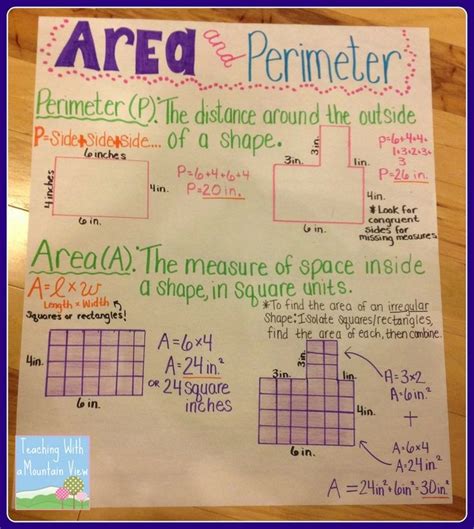 Area and Perimeter
Perimeter (P): The distance around the outside
P=Side+Side+Side... of a shape.
6 inches
4 inches
4in.
6 in.
P=6+4+6+4
P=20 in.
3in.
3in.
1in.
4in.
6 in.
P=6+4+4+
1+3+2+3+
3
P=26 in.
*Look for
congruent
sides for
missing measures
Area (A): The measure of space inside
A=l×w a shape, in square units.
Length × Width
Squares or rectangles!
*To find the area of an irregular
shape: Isolate squares/rectangles,
find the area of each, then combine.
4in.
6 in.
A=6×4
A=24in.²
OR 24 square
inches
3in.
1in.
4in.
6 in.
A=3×2
A=6in.²
+
A=6×4
A=24in.²
A=24in²+6in²=30in.²
Teaching With
a Mountain View